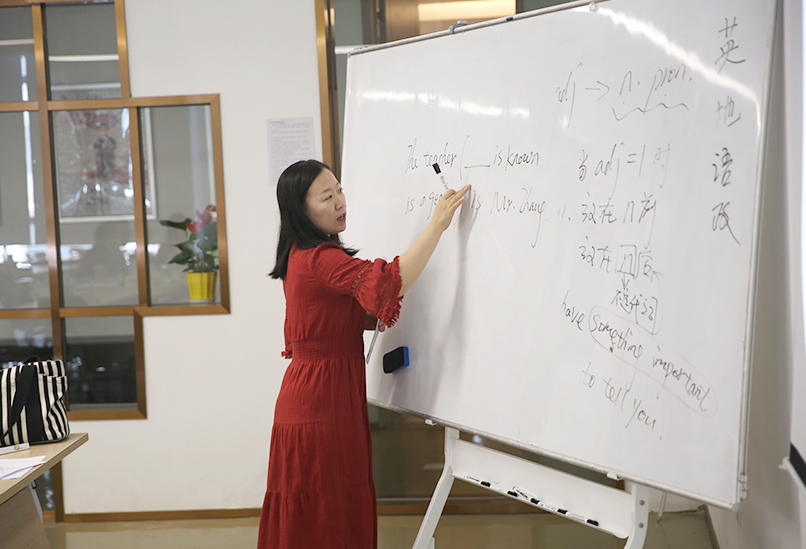 The teacher ( ___ is known
is a g is Mr. Zhang.
adj → n. pron.
当 adj = 1 时
放在 n 前
放在 n 后
不定代词
have something important
to tell you.
英
地
语
政